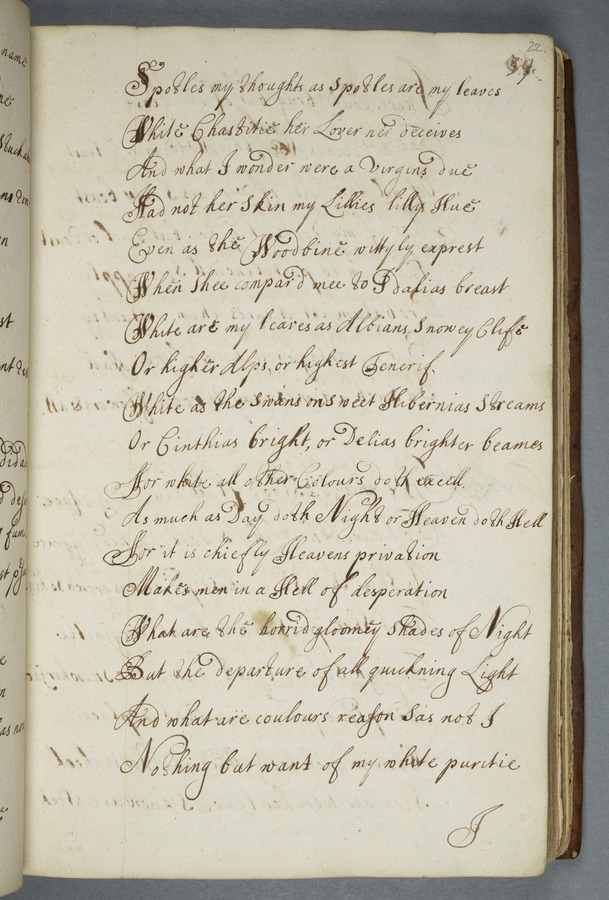 22
39.
Spotles my thoughts as Spotles are my leaves
White Chastitie her Lover ner deceives
And what I wonder were a Virgins due
Had not her Skin my Lillies lilly Hue
Even as the Woodbine wittyly exprest
When Shee compar'd mee to Idalias breast
White are my leaves as Albians Snowey Clifs
Or higher Alps, or highest Tenerif.
White as the Swans on Sweet Hibernias Streams
Or Cinthias bright, or Delias brighter beames
For white all other Colours doth excell.
As much as Day doth Night or Heaven doth Hell
For it is chiefly Heavens privation
Makes men in a Hell of desperation
What are the horrid gloomey Shades of Night
But the departure of all quickning Light
And what are coulours reason Sas not I
Nothing but want of my white puritie
I
name